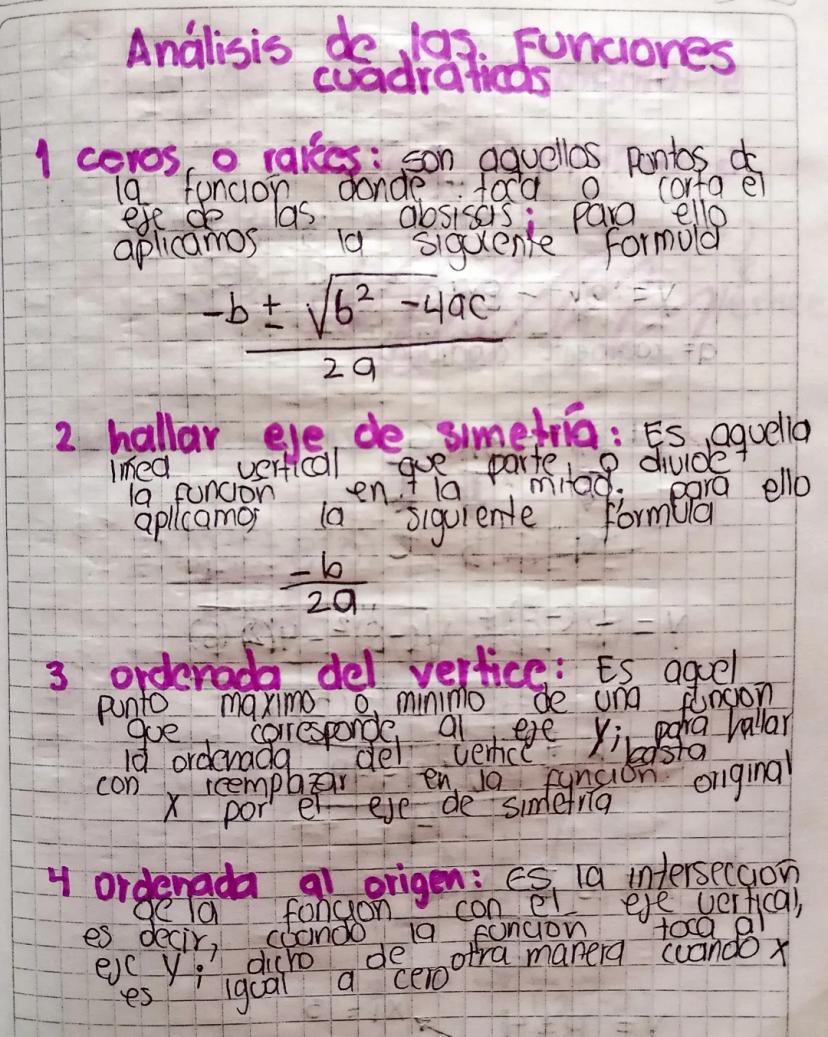 Análisis de las Funciones
cuadraticas
1 ceros o raices: son aquellos puntos de
la función donde toca o corta el
eje de las absisas; para ello
aplicamos la siguiente formula
-b ± √b² -4ac
2a
2 hallar eje de simetría: Es aquella
linea vertical que parte o divide
la función en la mitad. para ello
aplicamos la siguiente fórmula
-b
2a
3 ordenada del vertice: Es aquel
punto maximo o minimo de una funcion
que corresponde al eje y; para hallar
la ordenada del vertice basta
con reemplazar en la función original
x por el eje de simetría
4 ordenada al origen: es la intersección
de la funcion con el eje vertical,
es decir, cuando la funcion toca al
eje y; dicho de otra manera cuando x
es igual a cero